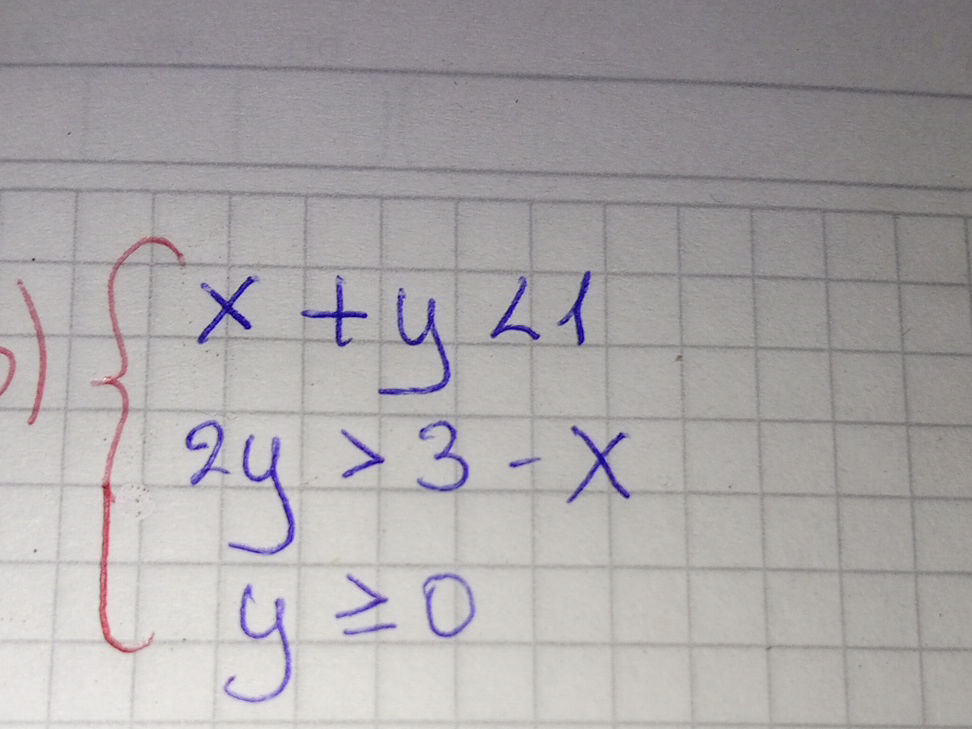 x + y < 1
2y > 3 - x
y ≥ 0